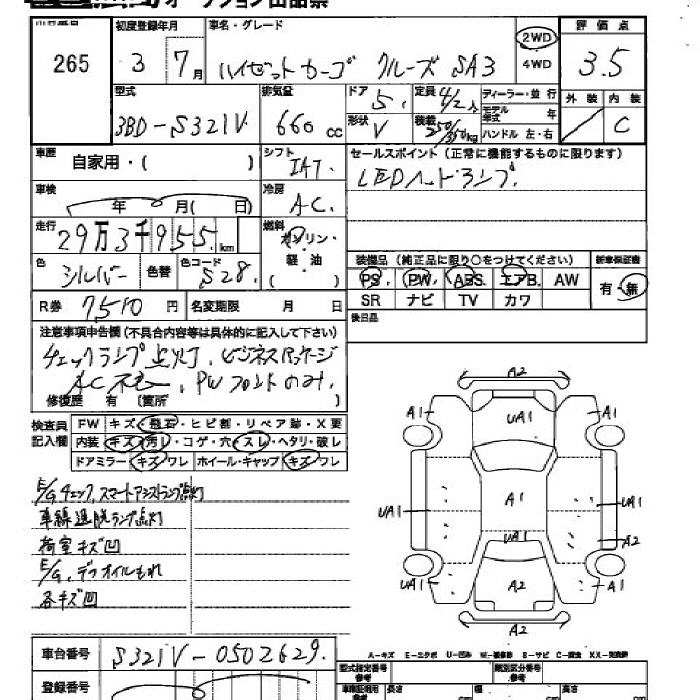 オークション出品票
265
初度登録年月
3年 7月
車名・グレード
ハイゼットカーゴ クルーズ SA3
2WD
4WD
評価点
3.5
外装 内装
C
型式
3BD-S321V
排気量
660 cc
ドア 5
形状 V
定員 4/2人
積載 250/350kg
ディーラー・並行
モデル年式 年
ハンドル 左・右
車歴
自家用・( )
シフト
IAT.
セールスポイント(正常に機能するものに限ります)
LEDヘッドランプ
車検
年 月( 日)
冷房
AC.
走行
29万3千955km
燃料
ガソリン・軽油
( )
色 シルバー 色替
色コード S28.
装備品(純正品に限り○をつけてください)
PS PW ABS エアB AW
SR ナビ TV カワ
新車保証書
有・無
R券 7510円 名変期限 月 日
後日品
注意事項申告欄(不具合内容等は具体的に記入して下さい)
チェックランプ点灯、ビジネスパッケージ
PWフロントのみ.
修復歴 有(箇所 )
検査員記入欄
FW キズ・飛石・ヒビ割・リペア跡・X要
内装 キズ・汚れ・コゲ・穴・スレ・ヘタリ・破レ
ドアミラー キズ・ワレ ホイール・キャップ キズ・ワレ
E/Gチェック,スマートアシストランプ点灯
車線逸脱ランプ点灯
荷室キズ凹
E/G,デフオイルもれ
各キズ凹
A2
A1 UA1 A1
UA1 A1 UA1
UA1 A2
UA1 A2 A1
A2
A-キズ E-エクボ U-凹み W-補修跡 S-サビ C-腐食 XX-交換済
車台番号 S321V-0502629.
登録番号
型式指定番号 類別区分番号
長さ cm 幅 cm 高さ cm